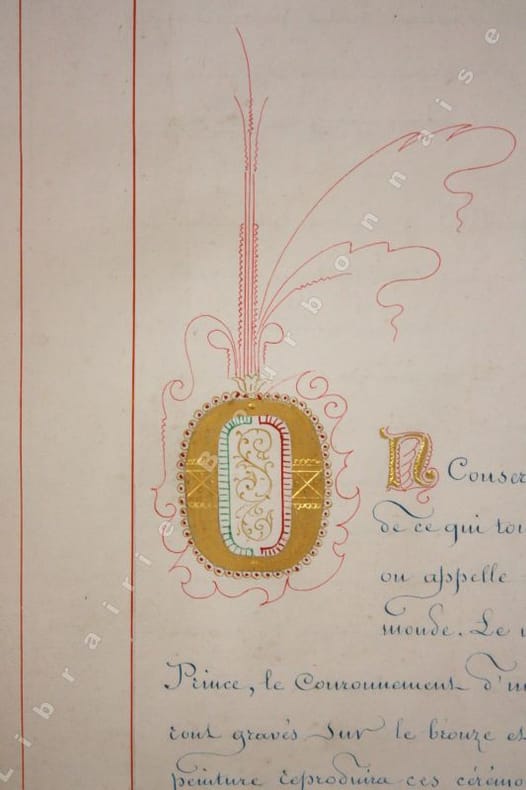 On Conser
de ce qui tou
on appelle
monde. Le
Prince, le Couronnement d'un
sont gravés sur le bronze et
peinture reproduira ces cérémo
Librairie Bourbonnaise